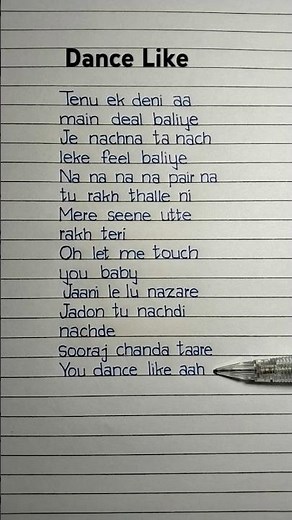 Dance Like
Tenu ek deni aa
main deal baliye
Je nachna ta nach
leke feel baliye
Na na na na pair na
tu rakh thalle ni
Mere seene utte
rakh teri
Oh let me touch
you baby
Jaani le lu nazare
Jadon tu nachdi
nachde
sooraj chanda taare
You dance like aah